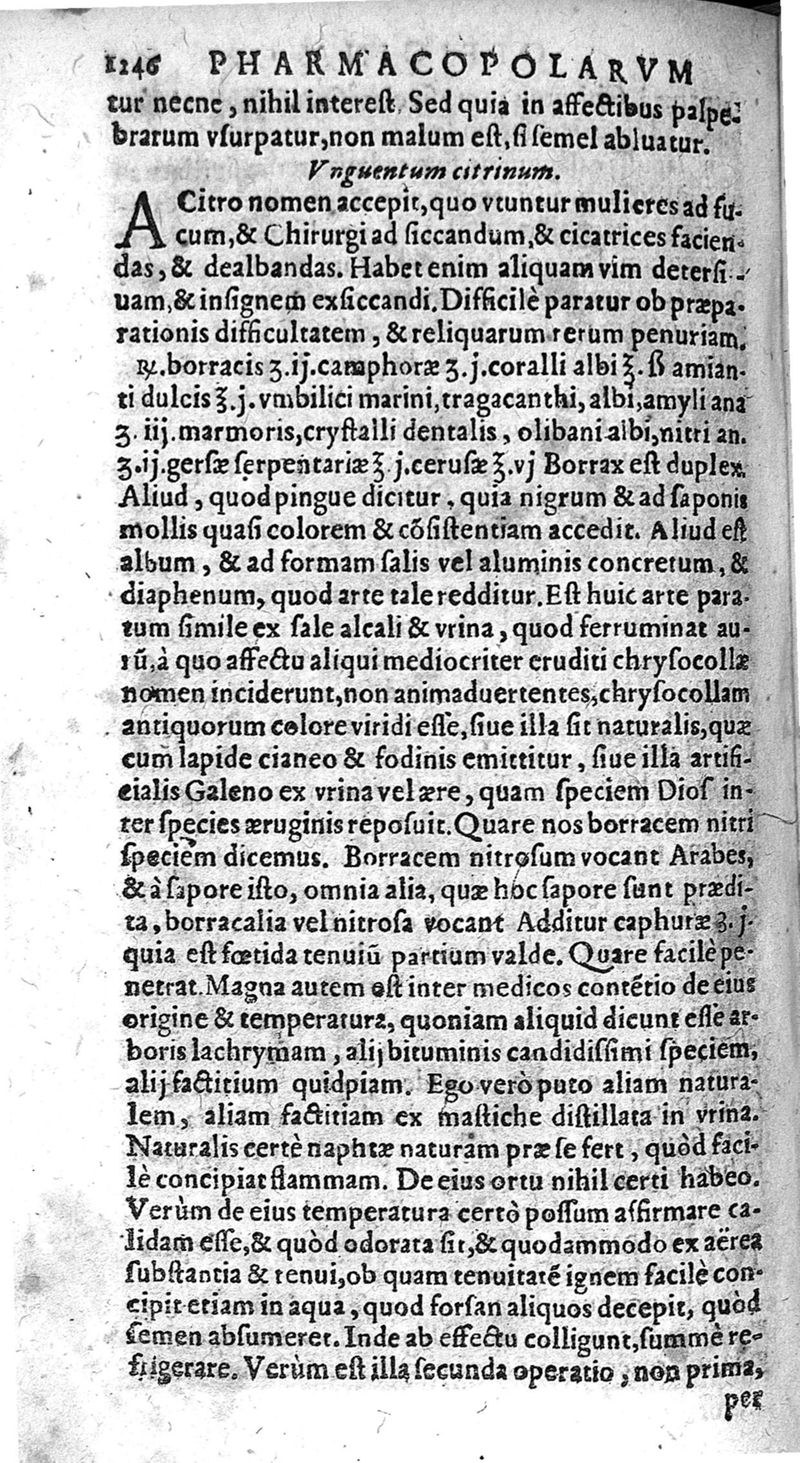 1246 PHARMACOPOLARVM
tur necne, nihil intereſt. Sed quia in affectibus palpe-
brarum vſurpatur, non malum eſt, ſi ſemel abluatur.
Vnguentum citrinum.
A Citro nomen accepit, quo vtuntur mulieres ad fu-
cum, & Chirurgi ad ſiccandum, & cicatrices facien-
das, & dealbandas. Habet enim aliquam vim deterſi-
uam, & inſignem exſiccandi. Difficilè paratur ob præpa-
rationis difficultatem, & reliquarum rerum penuriam.
℞. borracis ʒ.ij. camphoræ ʒ.j. coralli albi ℥.ß amian-
ti dulcis ℥.j. vmbilici marini, tragacanthi, albi, amyli ana
ʒ.iij. marmoris, cryſtalli dentalis, olibani albi, nitri an.
ʒ.ij. gerſæ ſerpentariæ ℥.j. ceruſæ ℥.vj Borrax eſt duplex.
Aliud, quod pingue dicitur, quia nigrum & ad ſaponis
mollis quaſi colorem & cõſiſtentiam accedit. Aliud eſt
album, & ad formam ſalis vel aluminis concretum, &
diaphenum, quod arte tale redditur. Eſt huic arte para-
tum ſimile ex ſale alcali & vrina, quod ferruminat au-
rũ, à quo affectu aliqui mediocriter eruditi chryſocollæ
nomen inciderunt, non animaduertentes, chryſocollam
antiquorum colore viridi eſſe, ſiue illa ſit naturalis, quæ
cum lapide cianeo & fodinis emittitur, ſiue illa artifi-
cialis Galeno ex vrina vel ære, quam ſpeciem Dioſ in-
ter ſpecies æruginis repoſuit. Quare nos borracem nitri
ſpeciem dicemus. Borracem nitroſum vocant Arabes,
& à ſapore iſto, omnia alia, quæ hoc ſapore ſunt prædi-
ta, borracalia vel nitroſa vocant Additur caphuræ ʒ.j.
quia eſt fœtida tenuiũ partium valde. Quare facilè pe-
netrat. Magna autem eſt inter medicos contẽtio de eius
origine & temperatura, quoniam aliquid dicunt eſſe ar-
boris lachrymam, alij bituminis candidiſſimi ſpeciem,
alij factitium quidpiam. Ego verò puto aliam natura-
lem, aliam factitiam ex maſtiche diſtillata in vrina.
Naturalis certè naphtæ naturam præ ſe fert, quòd faci-
lè concipiat flammam. De eius ortu nihil certi habeo.
Verùm de eius temperatura certò poſſum aſfirmare ca-
lidam eſſe, & quòd odorata ſit, & quodammodo ex aërea
ſubſtantia & tenui, ob quam tenuitatẽ ignem facilè con-
cipit etiam in aqua, quod forſan aliquos decepit, quòd
ſemen abſumeret. Inde ab effectu colligunt, ſummè re-
frigerare. Verùm eſt illa ſecunda operatio, non prima,
per